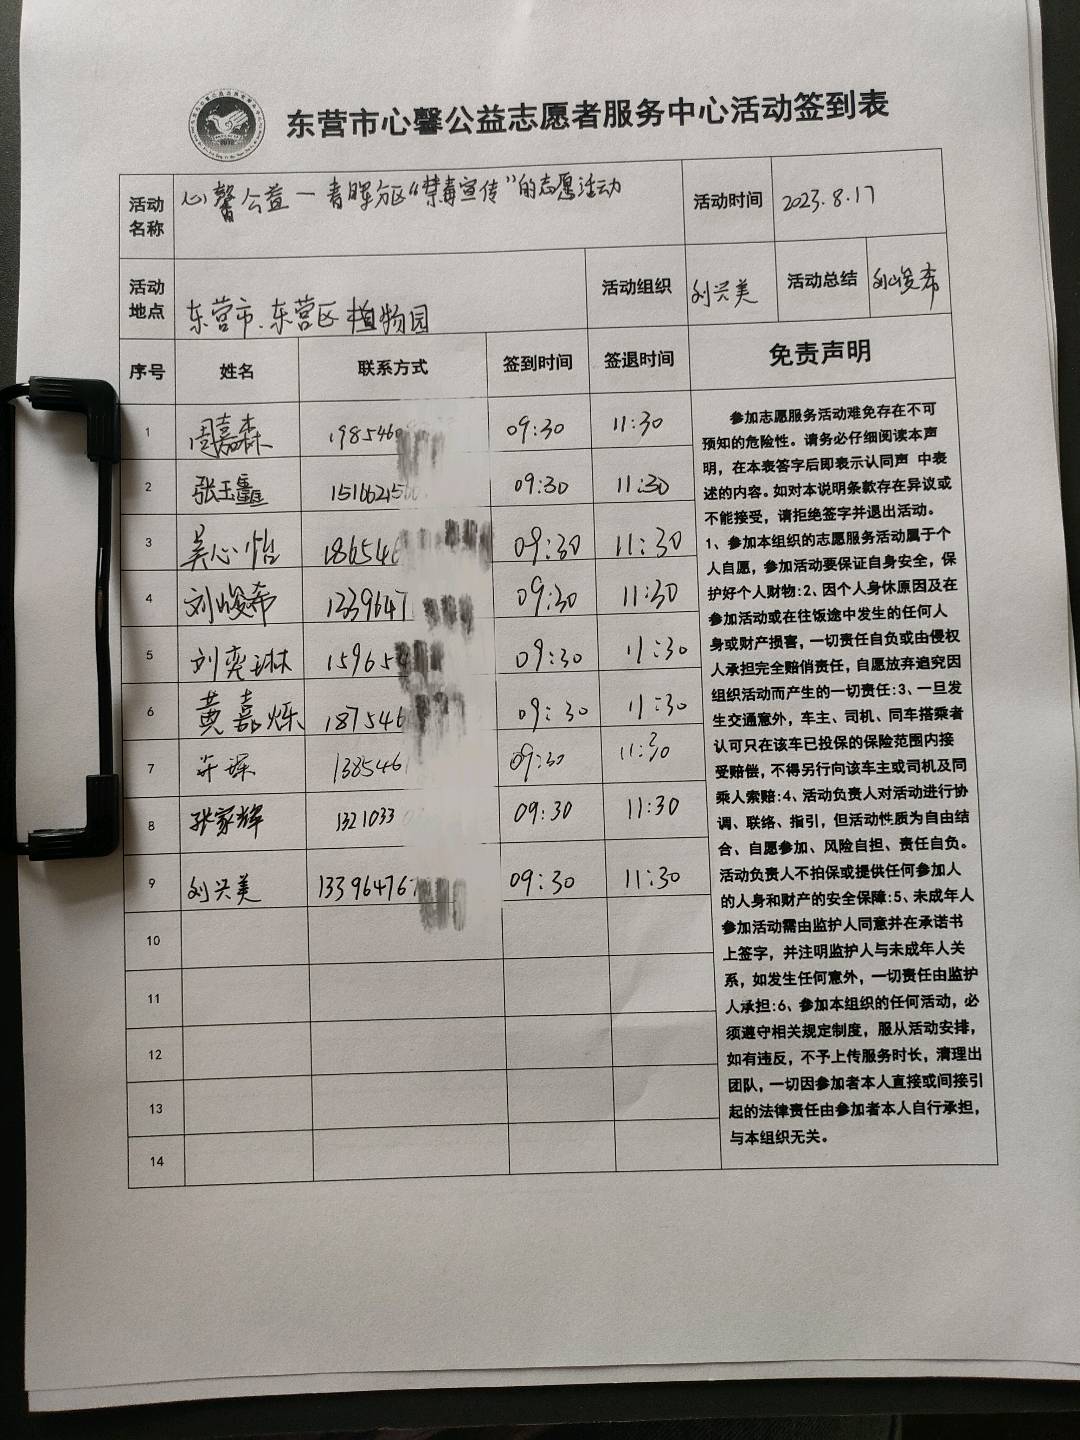 东营市心馨公益志愿者服务中心活动签到表
活动名称 心馨公益一青晖分区“禁毒宣传”的志愿活动 活动时间 2023.8.17
活动地点 东营市.东营区植物园 活动组织 刘兴美 活动总结 刘峻希
序号 姓名 联系方式 签到时间 签退时间 免责声明
1 周嘉森 1985460 09:30 11:30
2 张玉 15166215 09:30 11:30
3 吴心怡 186546 09:30 11:30
4 刘峻希 1339647 09:30 11:30
5 刘奕琳 159654 09:30 11:30
6 黄嘉烁 187546 09:30 11:30
7 1385461 09:30 11:30
8 张家辉 1321033 09:30 11:30
9 刘兴美 133964767 09:30 11:30
10
11
12
13
14
参加志愿服务活动难免存在不可
预知的危险性。请务必仔细阅读本声
明，在本表答字后即表示认同声 中表
述的内容。如对本说明条款存在异议或
不能接受，请拒绝签字并退出活动。
1、参加本组织的志愿服务活动属于个
人自愿，参加活动要保证自身安全，保
护好个人财物:2、因个人身休原因及在
参加活动或在往饭途中发生的任何人
身或财产损害，一切责任自负或由侵权
人承担完全赔俏责任，自愿放弃追究因
组织活动而产生的一切责任:3、一旦发
生交通意外，车主、司机、同车搭乘者
认可只在该车已投保的保险范围内接
受赔偿，不得另行向该车主或司机及同
乘人索赔:4、活动负责人对活动进行协
调、联络、指引，但活动性质为自由结
合、自愿参加、风险自担、责任自负。
活动负责人不拍保或提供任何参加人
的人身和财产的安全保障:5、未成年人
参加活动需由监护人同意并在承诺书
上签字，并注明监护人与未成年人关
系，如发生任何意外，一切责任由监护
人承担:6、参加本组织的任何活动，必
须遵守相关规定制度，服从活动安排，
如有违反，不予上传服务时长，清理出
团队，一切因参加者本人直接或间接引
起的法律责任由参加者本人自行承担，
与本组织无关。